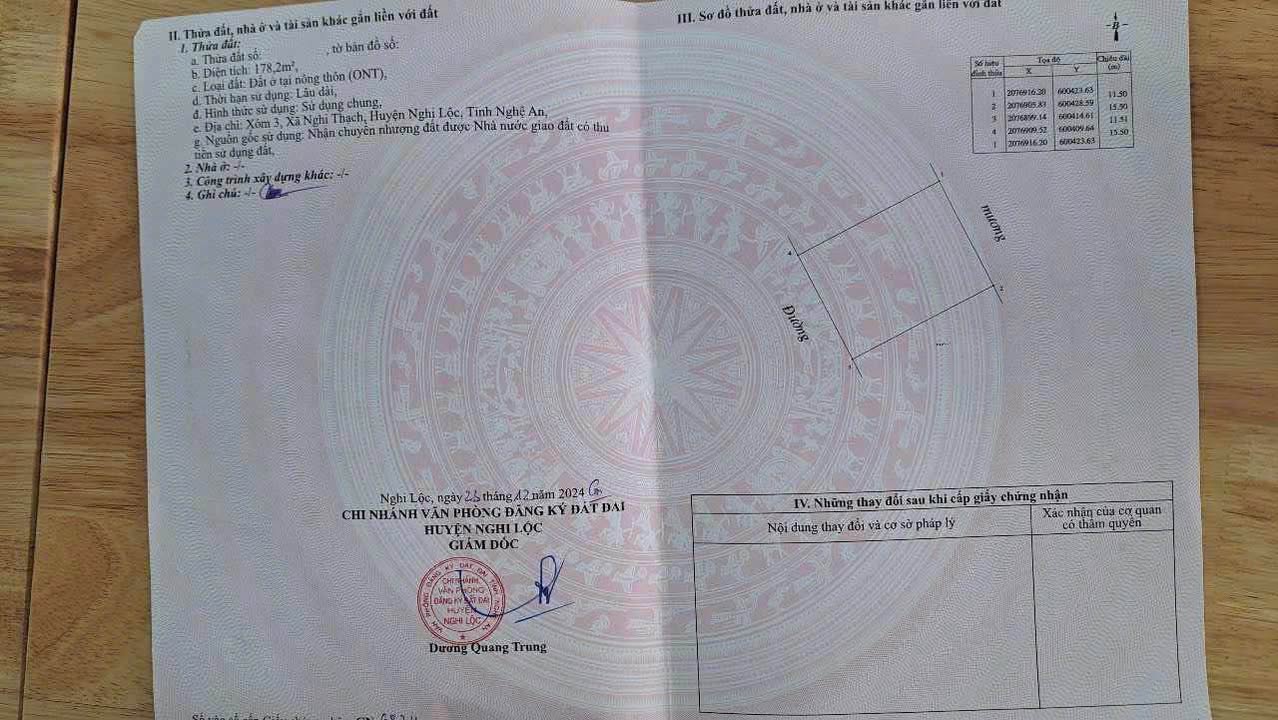 II. Thửa đất, nhà ở và tài sản khác gắn liền với đất
1. Thửa đất:
a. Thửa đất số: , tờ bản đồ số:
b. Diện tích: 178,2m²,
c. Loại đất: Đất ở tại nông thôn (ONT),
d. Thời hạn sử dụng: Lâu dài,
đ. Hình thức sử dụng: Sử dụng chung,
e. Địa chỉ: Xóm 3, Xã Nghi Thạch, Huyện Nghi Lộc, Tỉnh Nghệ An,
g. Nguồn gốc sử dụng: Nhận chuyển nhượng đất được Nhà nước giao đất có thu
tiền sử dụng đất,
2. Nhà ở: -/-
3. Công trình xây dựng khác: -/-
4. Ghi chú: -/-
Nghi Lộc, ngày 23 tháng 12 năm 2024
CHI NHÁNH VĂN PHÒNG ĐĂNG KÝ ĐẤT ĐAI
HUYỆN NGHI LỘC
GIÁM ĐỐC
VĂN PHÒNG ĐĂNG KÝ ĐẤT ĐAI TỈNH NGHỆ AN
CHI NHÁNH
VĂN PHÒNG
ĐĂNG KÝ ĐẤT ĐAI
HUYỆN
NGHI LỘC
Dương Quang Trung
III. Sơ đồ thửa đất, nhà ở và tài sản khác gắn liền với đất
B
Số hiệu đỉnh thửa Tọa độ Chiều dài (m)
X Y
1 2076916.20 600423.63
11.50
2 2076905.83 600428.59
15.50
3 2076899.14 600414.61
11.51
4 2076909.52 600409.64
15.50
1 2076916.20 600423.63
1
mương
4
2
Đường
3
IV. Những thay đổi sau khi cấp giấy chứng nhận
Nội dung thay đổi và cơ sở pháp lý Xác nhận của cơ quan
có thẩm quyền